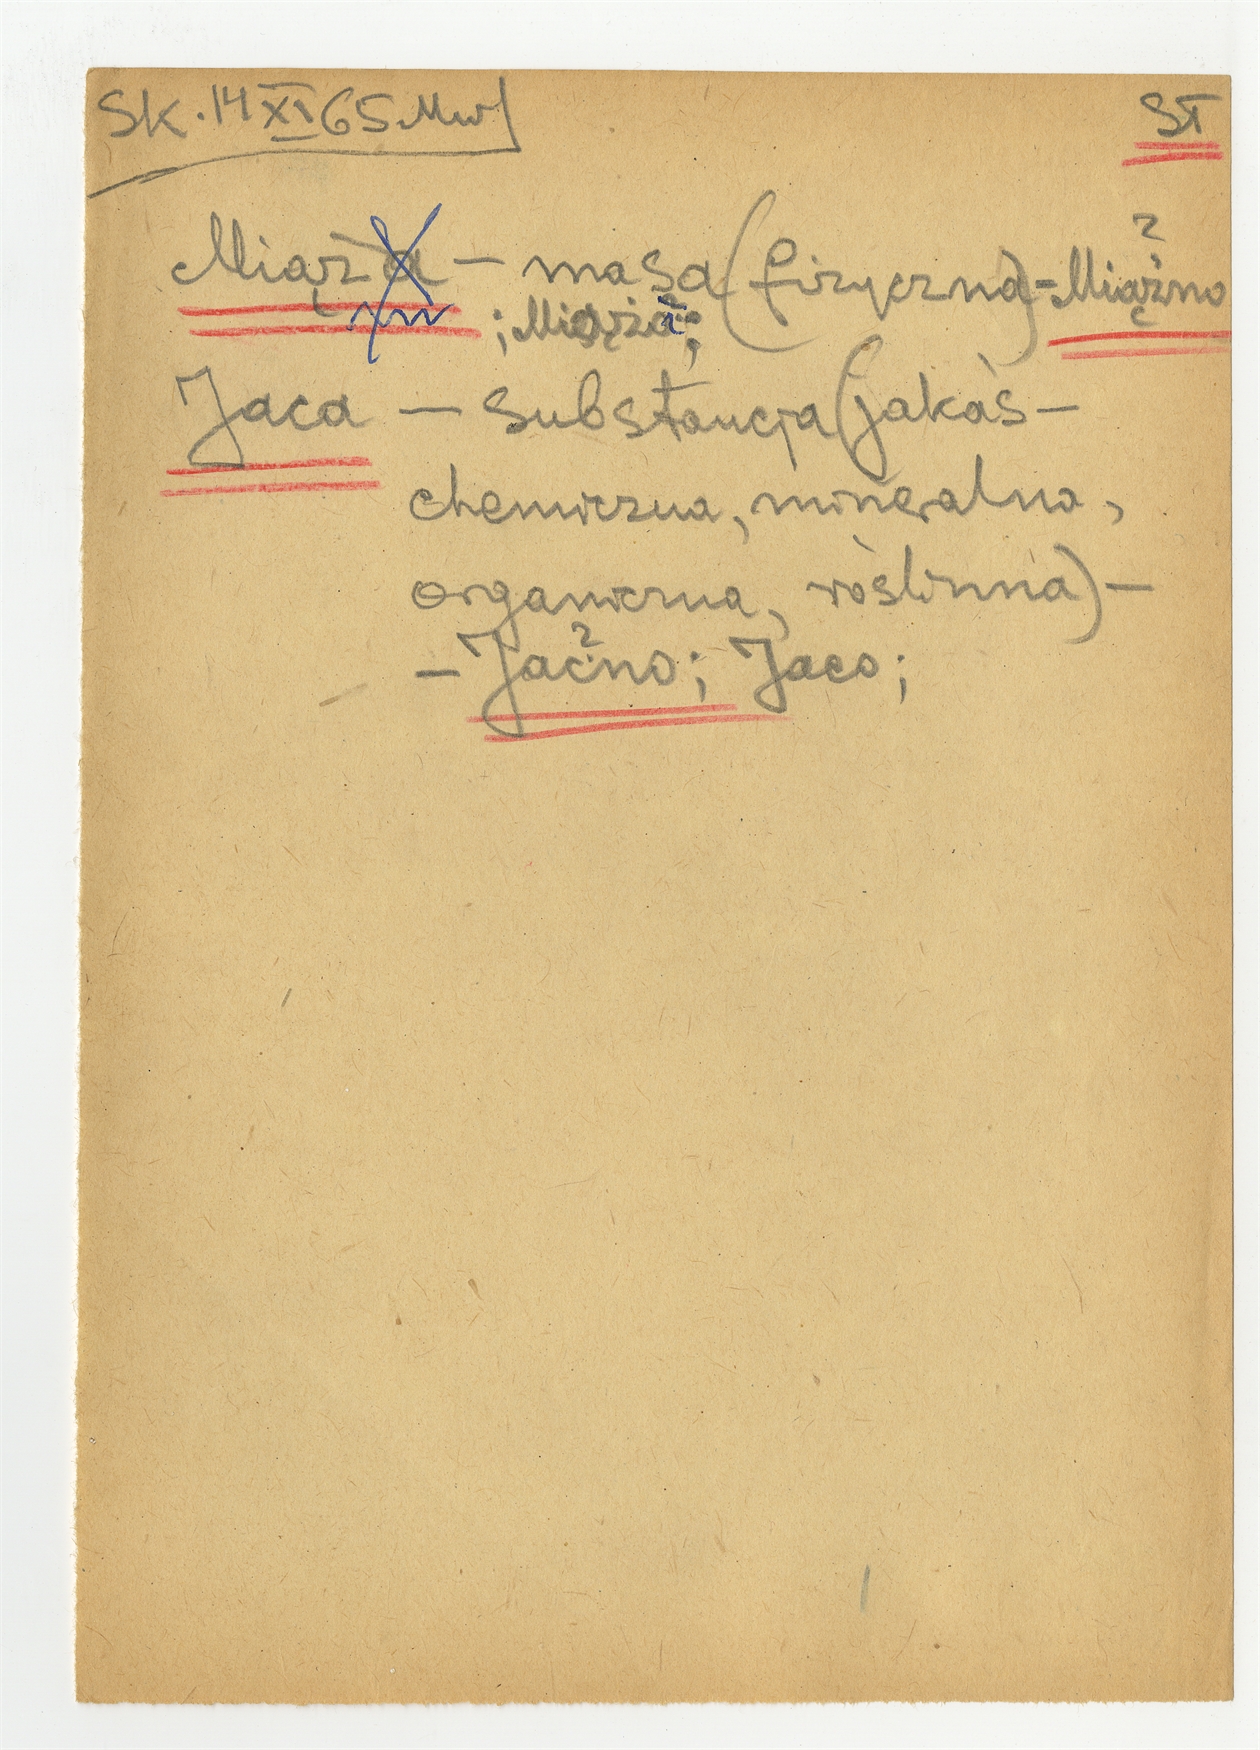 Sk. 14 XI 65 Mw
SŁ
Miąrża — masa (fizyczna) - Miążno
; Miąższ;
Jaca — substancja (jakaś —
chemiczna, mineralna,
organiczna, roślinna) —
— Jaćno; Jaco;